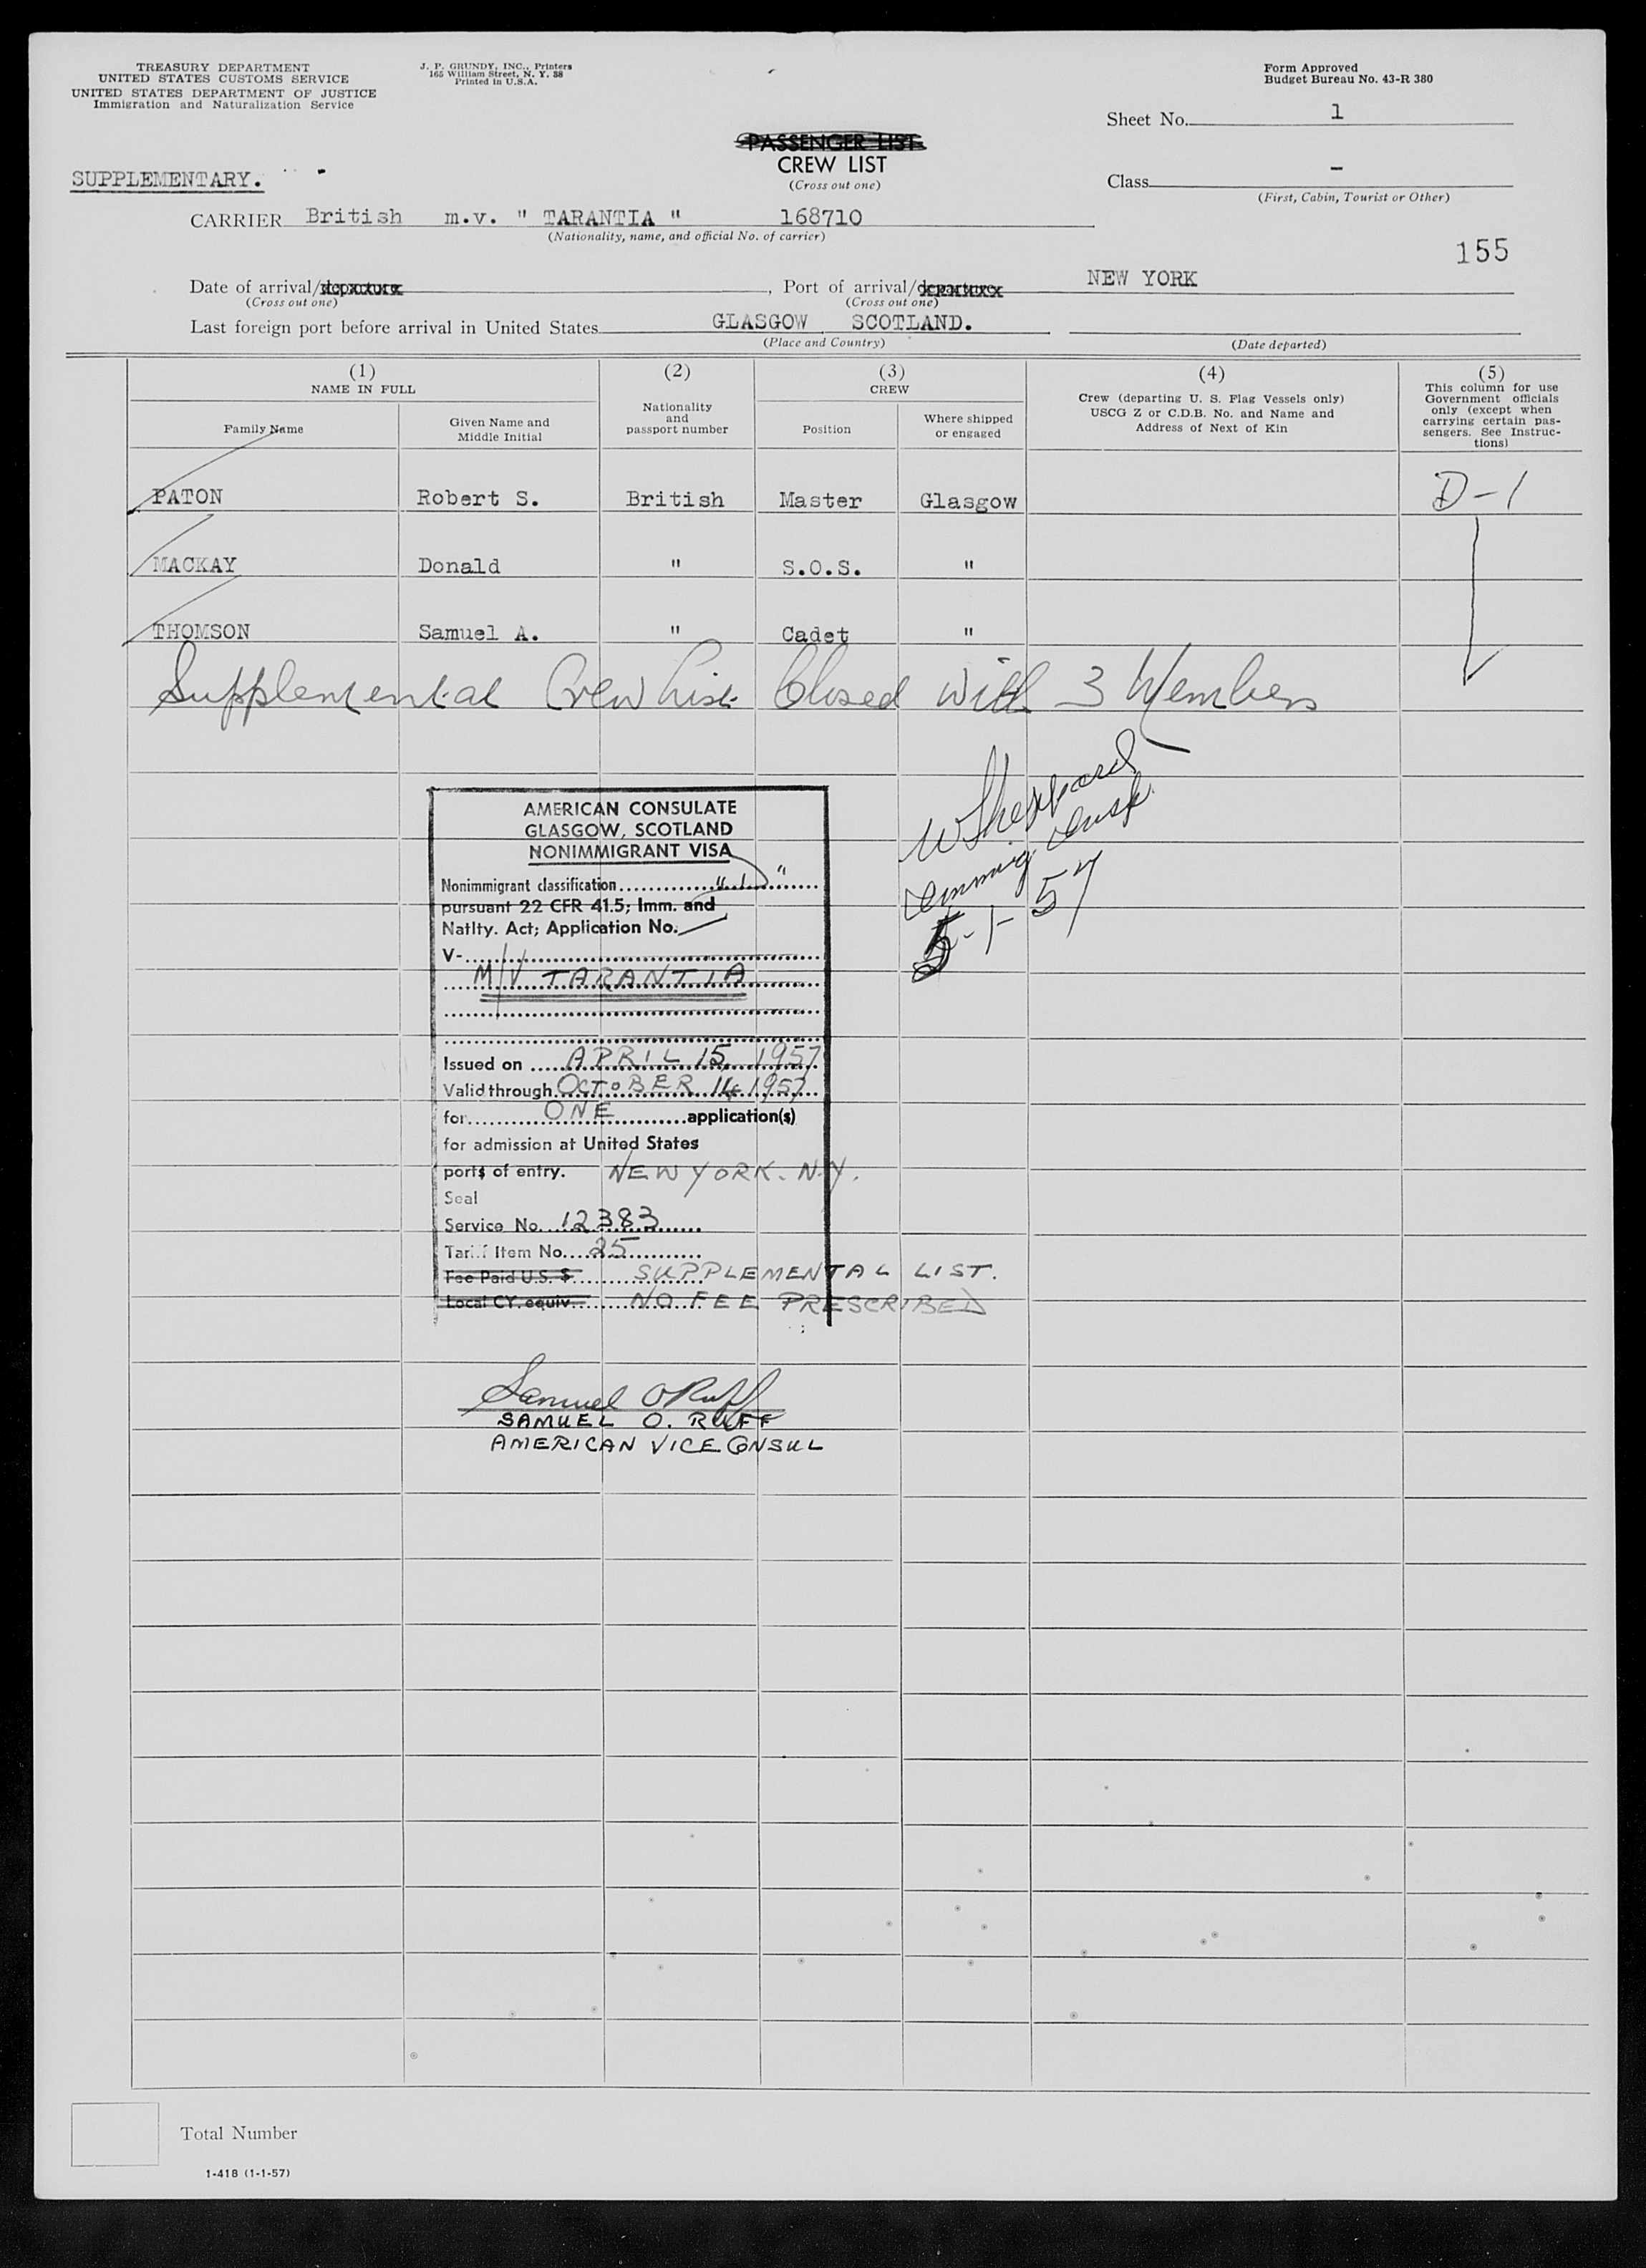 TREASURY DEPARTMENT
UNITED STATES CUSTOMS SERVICE
UNITED STATES DEPARTMENT OF JUSTICE
Immigration and Naturalization Service
J. P. GRUNDY, INC., Printers
165 William Street, N. Y. 38
Printed in U.S.A.
Form Approved
Budget Bureau No. 43-R 380
Sheet No. 1
PASSENGER LIST
CREW LIST
(Cross out one)
SUPPLEMENTARY.
Class -
(First, Cabin, Tourist or Other)
CARRIER British m.v. " TARANTIA " 168710
(Nationality, name, and official No. of carrier)
155
Date of arrival/departure , Port of arrival/departure NEW YORK
(Cross out one) (Cross out one)
Last foreign port before arrival in United States GLASGOW SCOTLAND.
(Place and Country) (Date departed)
(1) (2) (3) (4) (5)
NAME IN FULL
Family Name
Given Name and
Middle Initial
Nationality
and
passport number
CREW
Position
Where shipped
or engaged
Crew (departing U. S. Flag Vessels only)
USCG Z or C.D.B. No. and Name and
Address of Next of Kin
This column for use
Government officials
only (except when
carrying certain pas-
sengers. See Instruc-
tions)
PATON Robert S. British Master Glasgow D-1
MACKAY Donald " S.O.S. "
THOMSON Samuel A. " Cadet "
Supplemental Crew List Closed with 3 Members
W Sheppard
Immig Insp.
5-1-57
AMERICAN CONSULATE
GLASGOW, SCOTLAND
NONIMMIGRANT VISA
Nonimmigrant classification
pursuant 22 CFR 41.5; Imm. and
Natlty. Act; Application No.
V-
M/V TARANTIA
Issued on APRIL 15, 1957
Valid through OCTOBER 14 1957
for ONE application(s)
for admission at United States
ports of entry. NEW YORK. N.Y.
Seal
Service No. 12383
Tariff Item No. 25
Fee Paid U.S. $ SUPPLEMENTAL LIST.
Local CY. equiv. NO FEE PRESCRIBED
Samuel O Ruff
SAMUEL O. RUFF
AMERICAN VICE CONSUL
Total Number
1-418 (1-1-57)